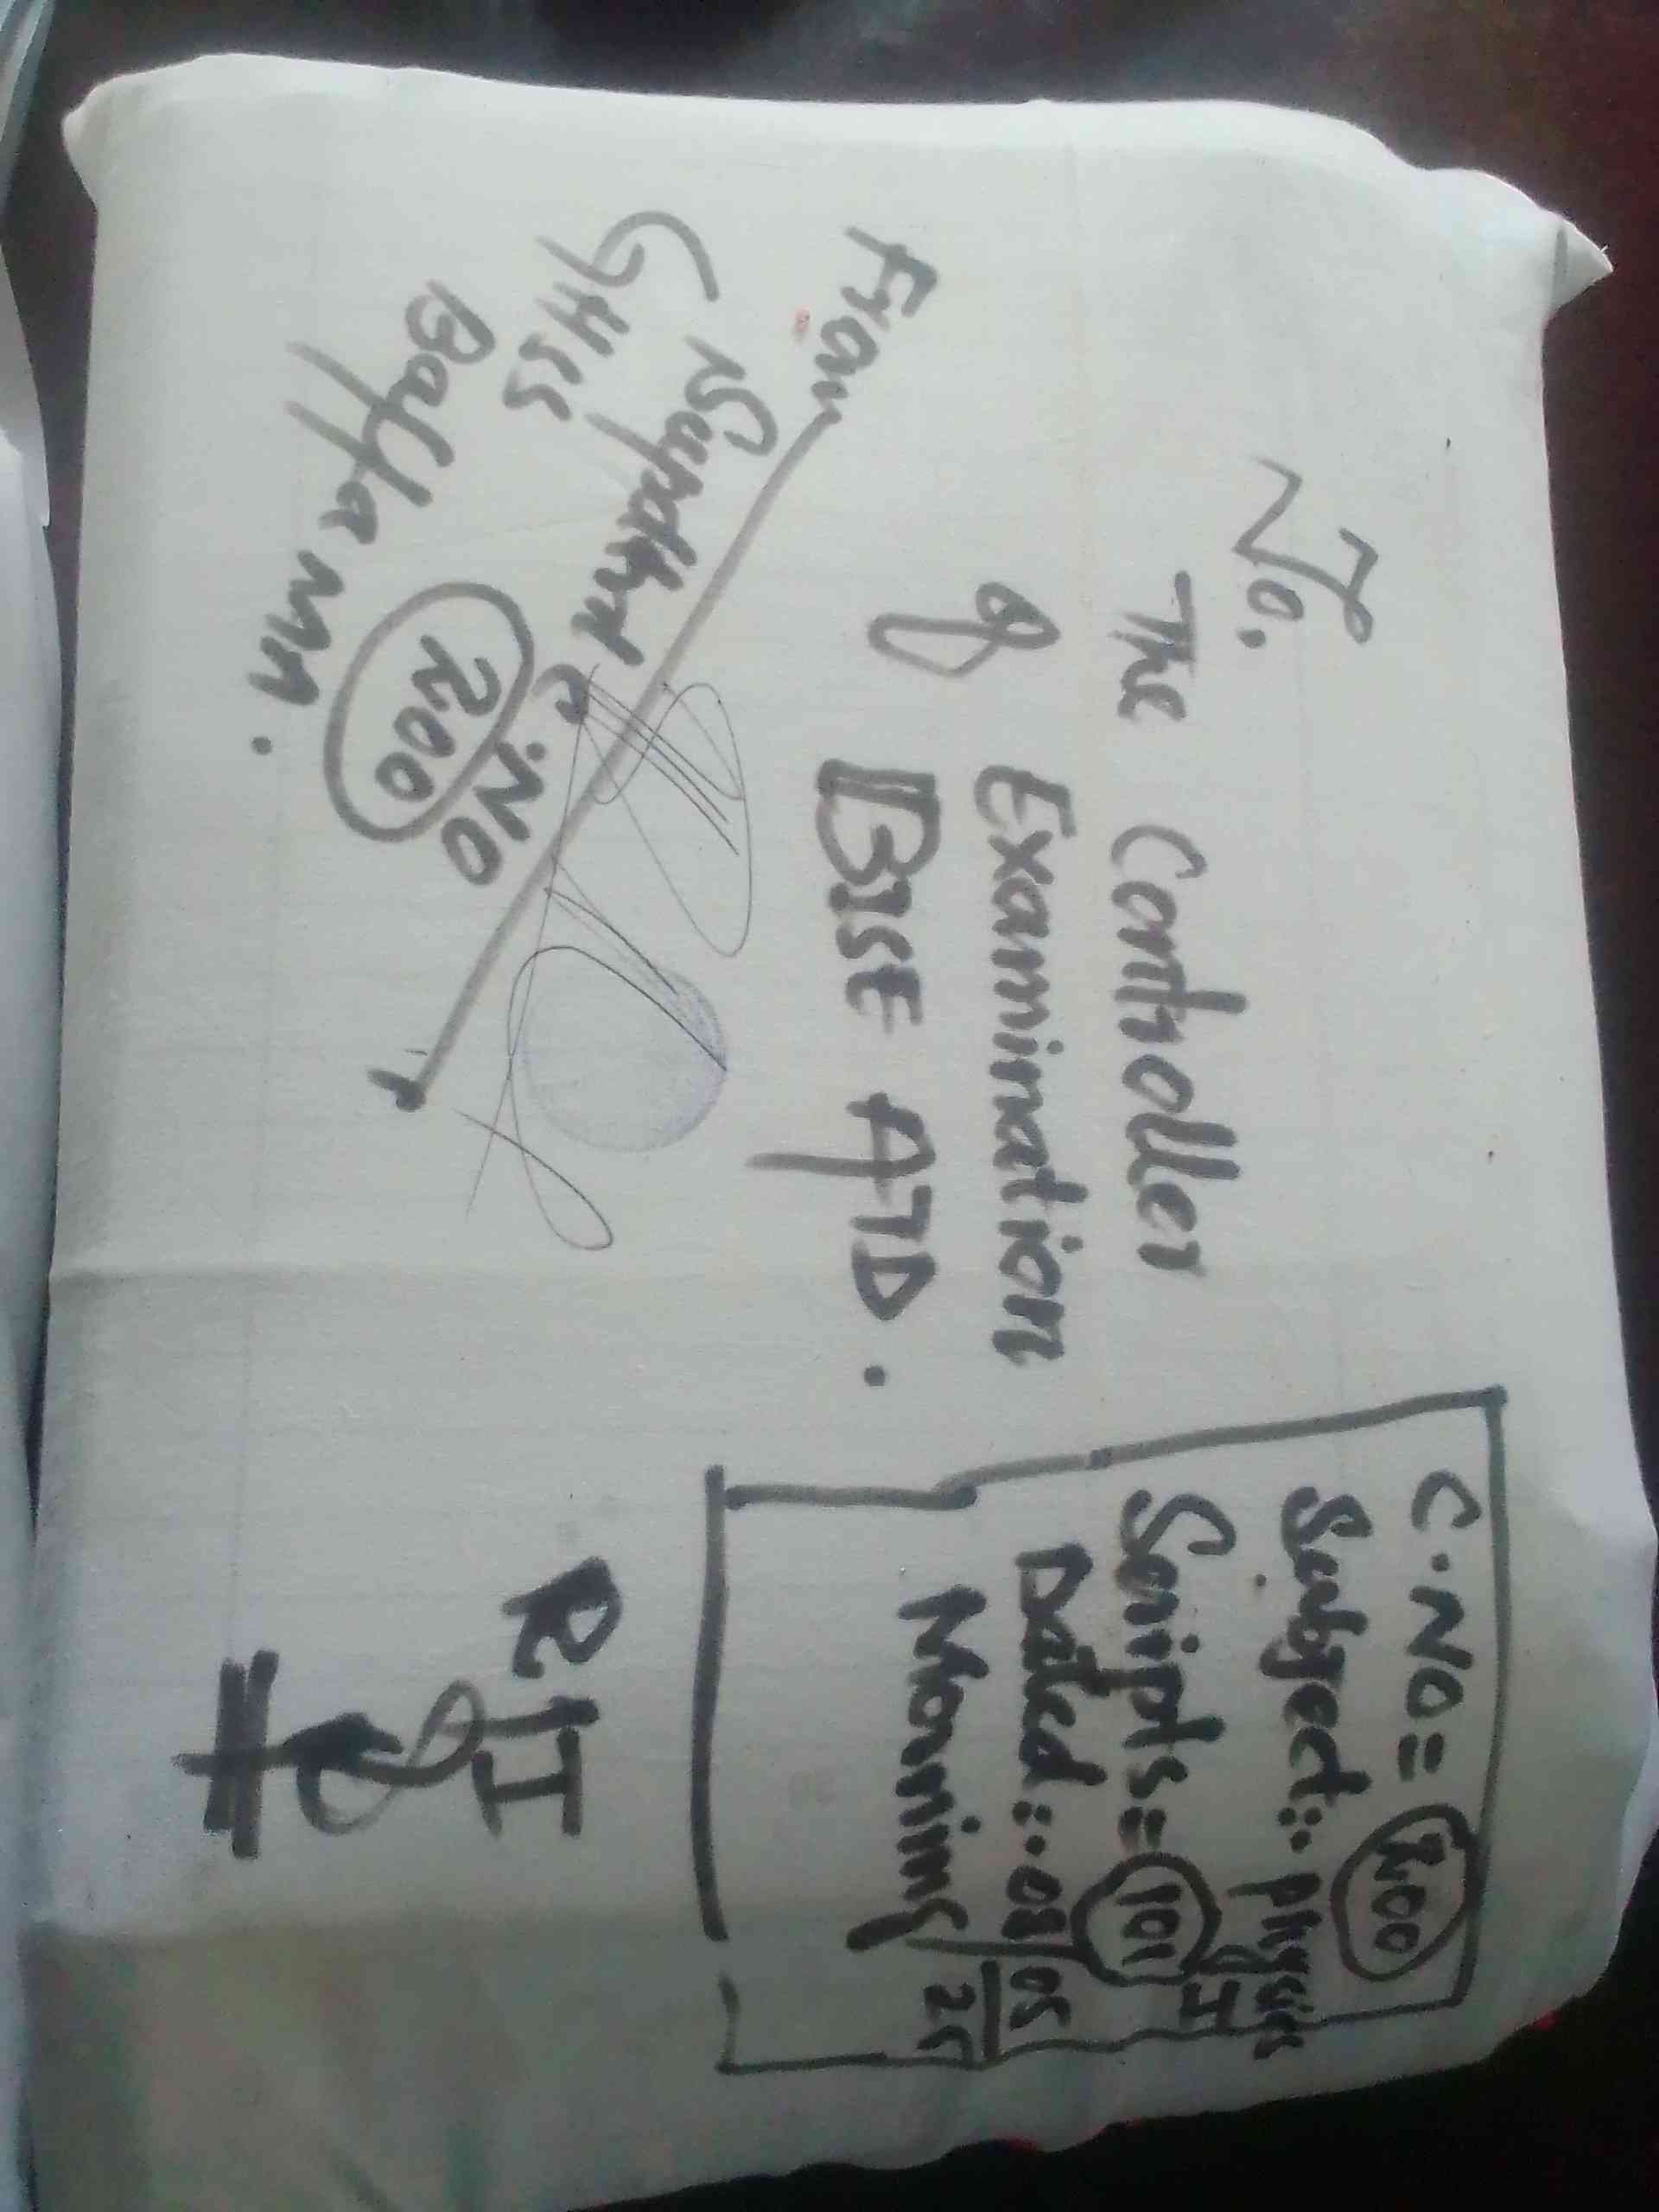 To.
The Controller
of Examination
BISE ATD.
C.NO= 200
Subject:- Physics
II
Scripts= 101
Dated:- 08/05/25
Morning
From
Supdhnt C.NO
GHSS 200
Baffa Mn.
R II